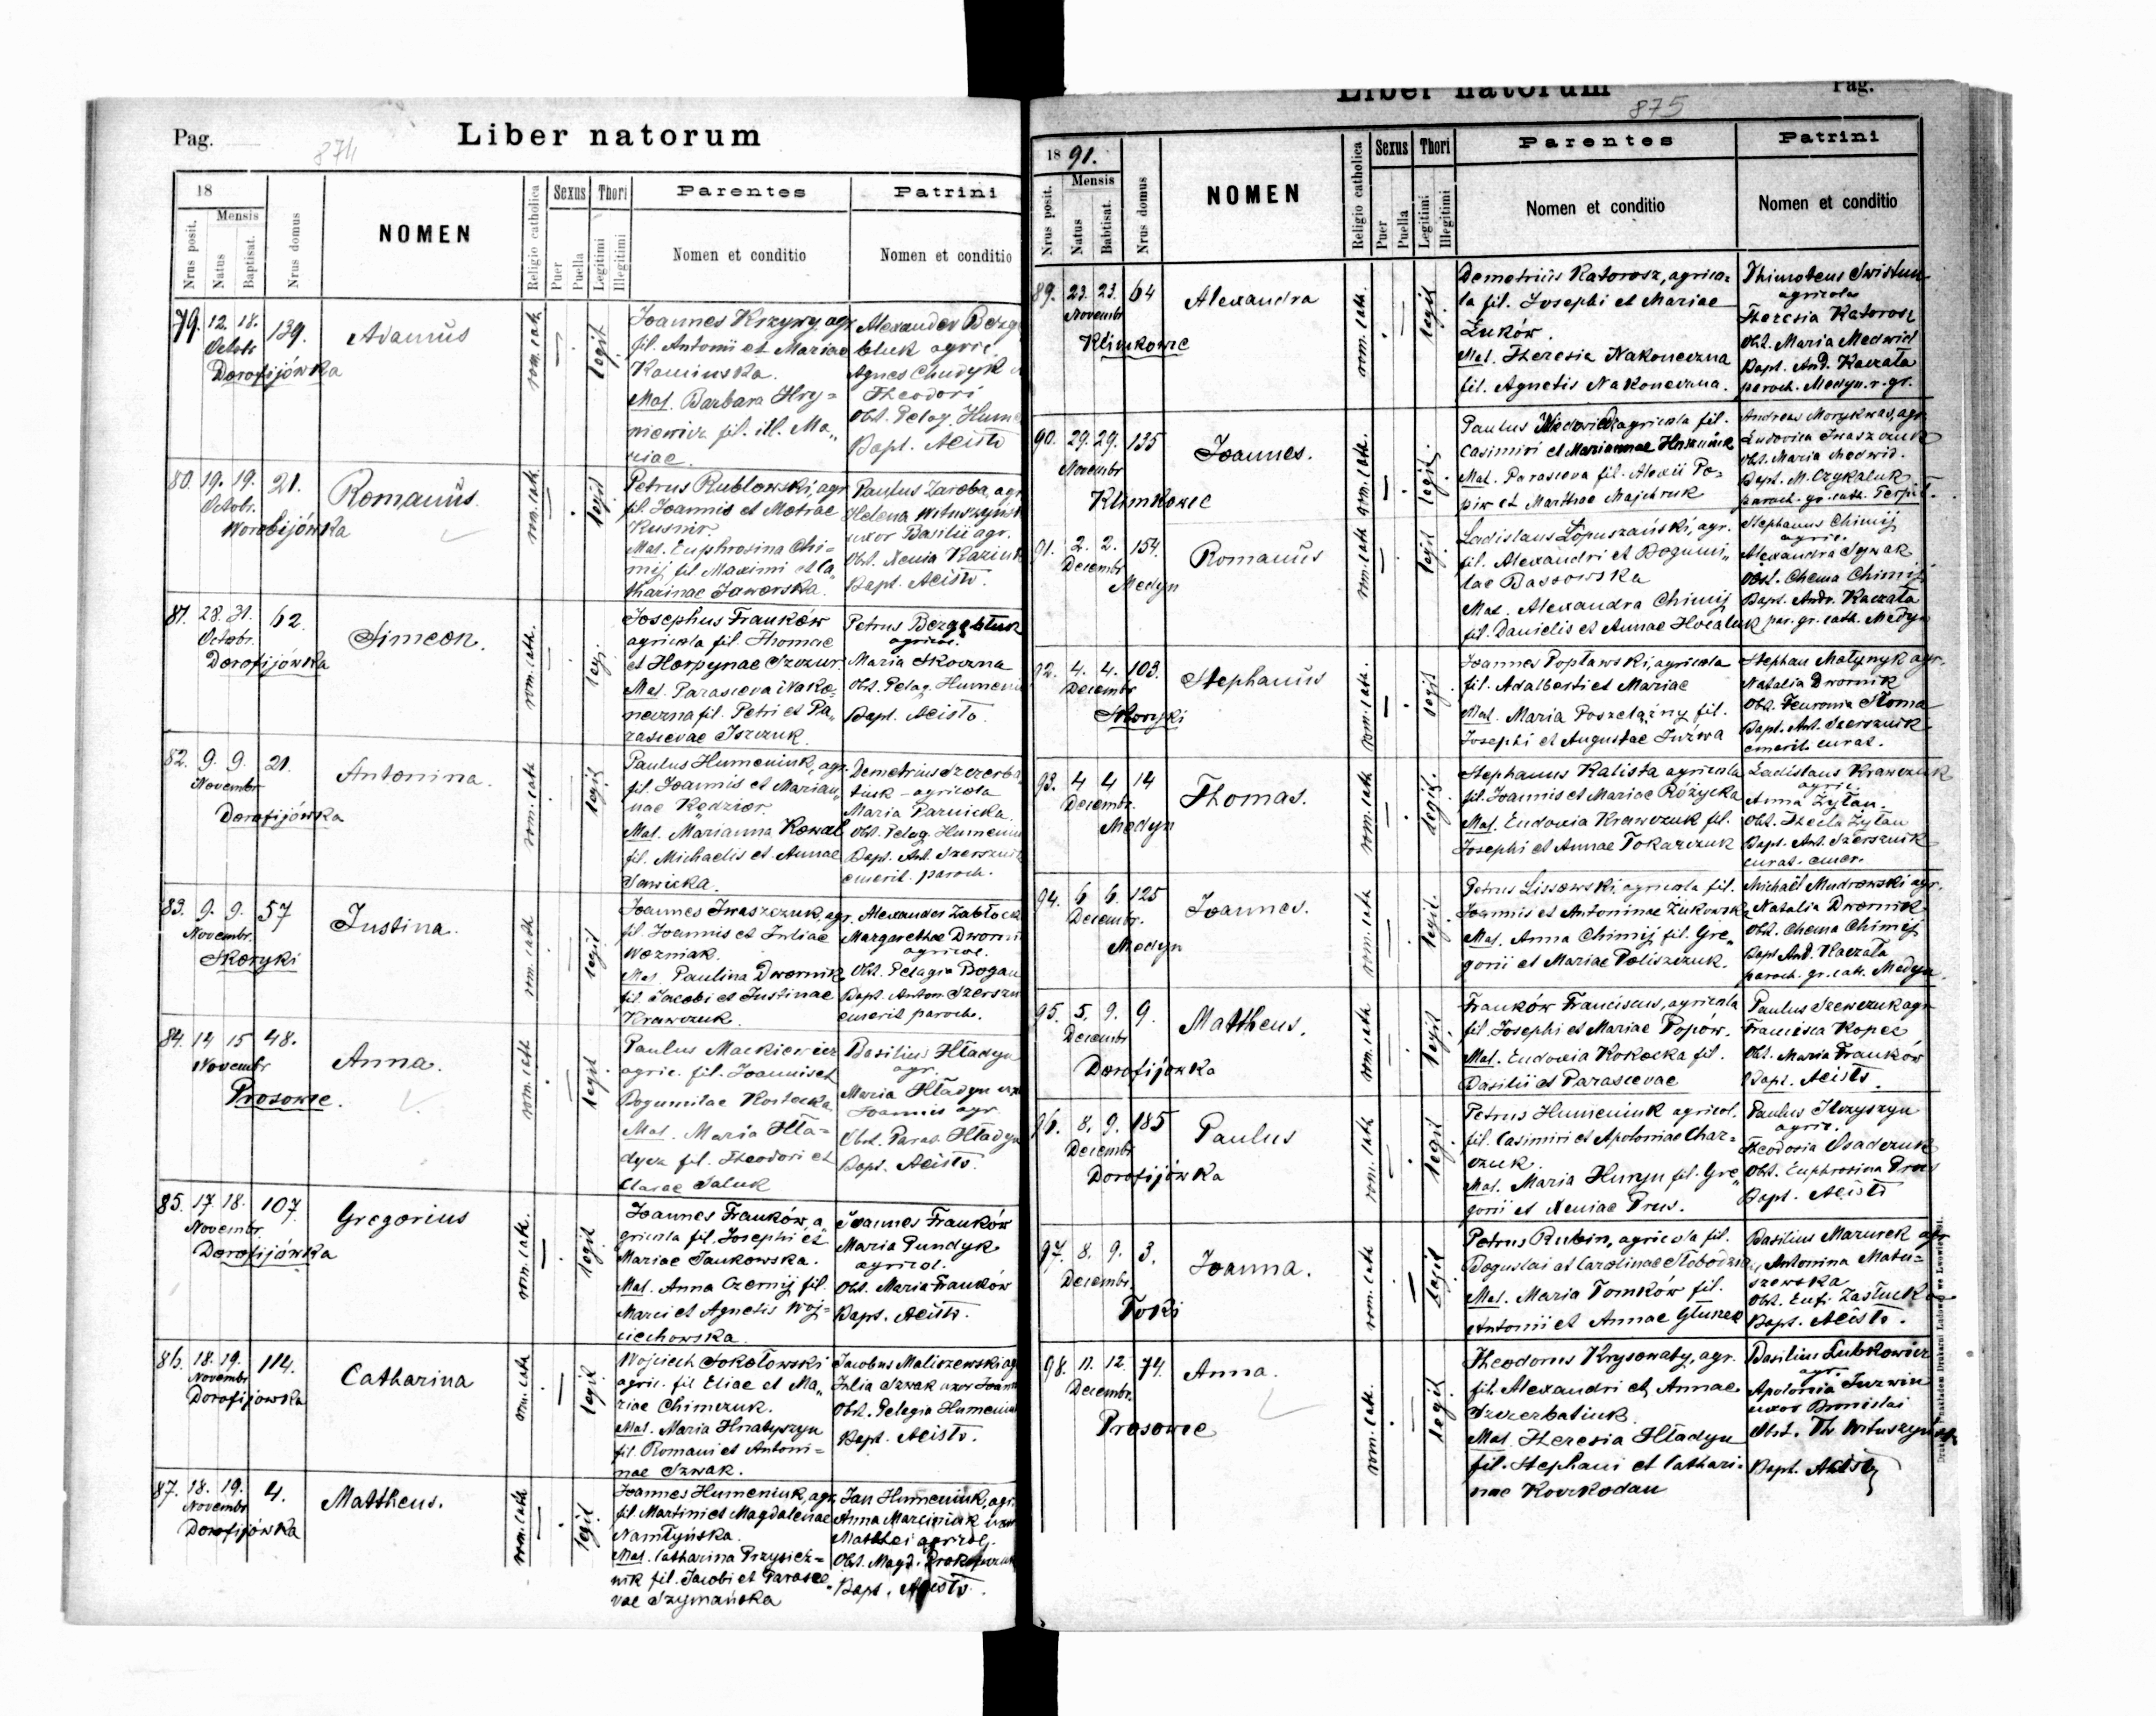 Pag. 874
Liber natorum
18
Nrus posit.
Mensis
Natus
Baptisat.
Nrus domus
NOMEN
Religio catholica
Sexus
Puer
Puella
Thori
Legitimi
Illegitimi
Parentes
Nomen et conditio
Patrini
Nomen et conditio
79. 12. 18. 139. Adamus
Octobr
Dorofijówka
rom. cath.
legit
Joannes Krzywy, agr
fil. Antonii et Mariae
Kaminska.
Mat. Barbara Hry=
niewicz fil. ill. Ma„
riae.
Alexander Bezg
bluk agric.
Agnes Chudyk
Theodori
Obst. Pelag. Hume
Bapt. Acisto
80. 19. 19. 21. Romanus.
Octobr.
Worobijówka
rom. cath.
legit
Petrus Rublowski, agr
fil. Joannis et Motriae
Kusnir.
Mat. Euphrosina Chi=
mij fil Maximi et Ca„
tharinae Jaworska.
Paulus Zaroba, agr
Helena Wituszyńsk
uxor Basilii agr.
Obst. Xenia Kaziuk
Bapt. Acisto.
81. 28. 31. 62. Simeon.
Octobr.
Dorofijówka
rom. cath.
leg.
Josephus Franków
agricola fil. Thomae
et Horpynae Szczur.
Mat. Parasceva Nako=
neczna fil. Petri et Pa„
rascevae Iszczuk.
Petrus Bezgabluk
agricol.
Maria Skoczna
Obst. Pelag. Humeniu
Bapt. Acisto.
82. 9. 9. 21. Antonina.
Novembr
Dorofijówka
rom. cath
legit
Paulus Humeniuk, agr.
fil. Joannis et Marian„
nae Kędzior.
Mat. Marianna Kowal
fil. Michaelis et Annae
Sawicka.
Demetrius Szczerba
tiuk - agricola
Maria Parnicka.
Obst. Pelag. Humeniu
Bapt. Ant. Szerszni
emerit. paroch.
83. 9. 9. 57 Justina.
Novembr.
Skoryki
rom. cath
legit
Joannes Iwaszczuk, agr.
fil. Joannis et Juliae
Wozniak.
Mat. Paulina Dwornik
fil. Jacobi et Justinae
Krawczuk.
Alexander Zabłock
Margaretha Dworni
agricol.
Obst. Pelagia Bogan
Bapt. Anton Szerszn
emerit paroch.
84. 14 15 48. Anna.
Novembr
Prosowce.
rom. cath
legit
Paulus Mackiewicz
agric. fil. Joannis et
Bogumilae Kostecka.
Mat. Maria Hła=
dycz fil. Theodori et
Clarae Saluk
Basilius Hładyn
agr.
Maria Hładyn uxo
Joannis agr.
Obst. Paras. Hładyn
Bapt. Acisto.
85. 17. 18. 107. Gregorius
Novembr.
Dorofijówka
rom. cath.
legit
Joannes Franków, a„
gricola fil. Josephi et
Mariae Jankowska.
Mat. Anna Czernij fil.
Marci et Agnetis Woj=
ciechowska.
Joannes Franków
Maria Pundyk
agricol.
Obst. Maria Franków
Bapt. Acisto.
86. 18. 19. 114. Catharina
Novembr
Dorofijowka
rom. cath
legit
Wojciech Sokołowski
agric. fil Eliae et Ma„
riae Chimczuk.
Mat. Maria Hnatyszyn
fil. Romani et Antoni=
nae Szwak.
Jacobus Maliszewski ag
Julia Szwak uxor Joann
Obst. Pelegia Humeniuk
Bapt. Acisto.
87. 18. 19. 4. Mattheus.
Novembr
Dorofijówka
rom. cath
legit
Joannes Humeniuk, agr,
fil. Martini et Magdalenae
Namłyńska.
Mat. Catharina Przysiez=
nik fil. Jacobi et Parasce
vae Szymańska
Jan Humeniuk, agr.
Anna Marciniuk uxor
Matthei agricol.
Obst. Magd. Prokopczuk
Bapt. Acisto.
Liber natorum
Pag.
875
18 91.
Nrus posit.
Mensis
Natus
Babtisat.
Nrus domus
NOMEN
Religio catholica
Sexus
Puer
Puella
Thori
Legitimi
Illegitimi
Parentes
Nomen et conditio
Patrini
Nomen et conditio
89. 23. 23. 64 Alexandra
Novembr
Klimkowce
rom. cath.
legit
Demetrius Katorosz, agrico=
la fil. Josephi et Mariae
Żuków.
Mat. Theresia Nakoneczna
fil. Agnetis Nakoneczna.
Thimoteus Swistun
agricola
Theresia Katorosz
Obst. Maria Medwid
Bapt. And. Kaczała
paroch. Medyn. r. gr.
90. 29. 29. 135 Joannes.
Novembr
Klimkowce
rom. cath.
legit.
Paulus Medwid agricola fil.
Casimiri et Mariannae Hryniuk
Mat. Parasceva fil. Alexii Po=
piw et Marthae Majchruk
Andreas Morykwas, agr
Ludovica Iwaszczuk
Obst. Maria Medwid.
Bapt. M. Czykaluk
paroch. gr. cath. Terpil.
91. 2. 2. 154. Romanus
Decembr
Medyn
rom. cath
legit
Ladislaus Łopuszański, agr.
fil. Alexandri et Bogumi„
lae Bassowska
Mat. Alexandra Chimij
fil. Danielis et Annae Hocaluk
Stephanus Chimij
agric.
Alexandra Sywak
Obst. Chema Chimij
Bapt. Andr. Kaczała
par. gr. cath. Medyn
92. 4. 4. 103. Stephanus
Decembr
Skoryki
rom. cath.
legit
Joannes Popławski, agricola
fil. Adalberti et Mariae
Mat. Maria Poszelążny fil.
Josephi et Augustae Juźwa
Stephan Matynyk agr.
Natalia Dwornik
Obst. Feuronia Słoma
Bapt. Ant. Szersznik
emerit. curat.
93. 4 4 14 Thomas.
Decembr.
Medyn
rom. cath
legit.
Stephanus Kalista agricola
fil. Joannis et Mariae Różycka
Mat. Eudoxia Krawczuk fil.
Josephi et Annae Tokarczuk
Ladislaus Krawczuk
agric.
Anna Żyłan.
Obst. Thecla Żyłan
Bapt. Ant. Szersznik
curat. emer.
94. 6 6. 125 Joannes.
Decembr.
Medyn
rom. cath
legit.
Petrus Lissowski, agricola fil.
Joannis et Antoninae Żukowska
Mat. Anna Chimij fil. Gre„
gorii et Mariae Poliszczuk.
Michaël Mudrowski agr.
Natalia Dwornik
Obst. Chema Chimij
Bapt And. Kaczała
paroch. gr. cath. Medyn.
95. 5. 9. 9. Mattheus.
Decembr
Dorofijówka
rom. cath
legit
Franków Franciscus, agricola
fil. Josephi et Mariae Popów.
Mat. Eudoxia Kokocka fil.
Basilii et Parascevae
Paulus Szewczuk agr
Francisca Kopeć
Obst. Maria Franków
Bapt. Acisto.
96. 8. 9. 185 Paulus
Decembr
Dorofijówka
rom. cath
legit
Petrus Humeniuk agricol.
fil. Casimiri et Apoloniae Char=
czuk.
Mat. Maria Huryn fil. Gre„
gorii et Xeniae Prus.
Paulus Ilczyszyn
agric.
Theodosia Osadczuk
Obst. Euphrosina Prus
Bapt. Acisto
97. 8. 9. 3. Joanna.
Decembr.
Toki
rom. cath
legit
Petrus Rubin, agricola fil.
Boguslai et Carolinae Słobodzia
Mat. Maria Tomków fil.
Antonii et Annae Głuszek
Basilius Mazurek agr
Antonina Matu=
szewska
Obst. Eufr. Zastucka
Bapt. Acisto.
98. 11. 12. 74. Anna.
Decembr.
Prosowce
rom. cath.
legit
Theodorus Krysowaty, agr.
fil. Alexandri et Annae
Szczerbatiuk.
Mat. Theresia Hładyn
fil. Stephani et Cathari=
nae Korzkodan
Basilius Lubkowicz
agr.
Apolonia Juzwin
uxor Bronislai
Obst. Th. Wituszyńska
Bapt. Acisto